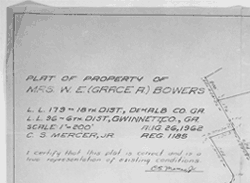 PLAT OF PROPERTY OF
MRS. W. E. (GRACE R.) BOWERS
L. L. 179 - 18TH DIST, DEKALB CO. GA.
L. L. 36 - 6TH DIST, GWINNETT CO., GA.
SCALE 1"=200' AUG 26, 1962
C. S. MERCER, JR. REG. 1185
I certify that this plat is correct and is a
true representation of existing conditions.